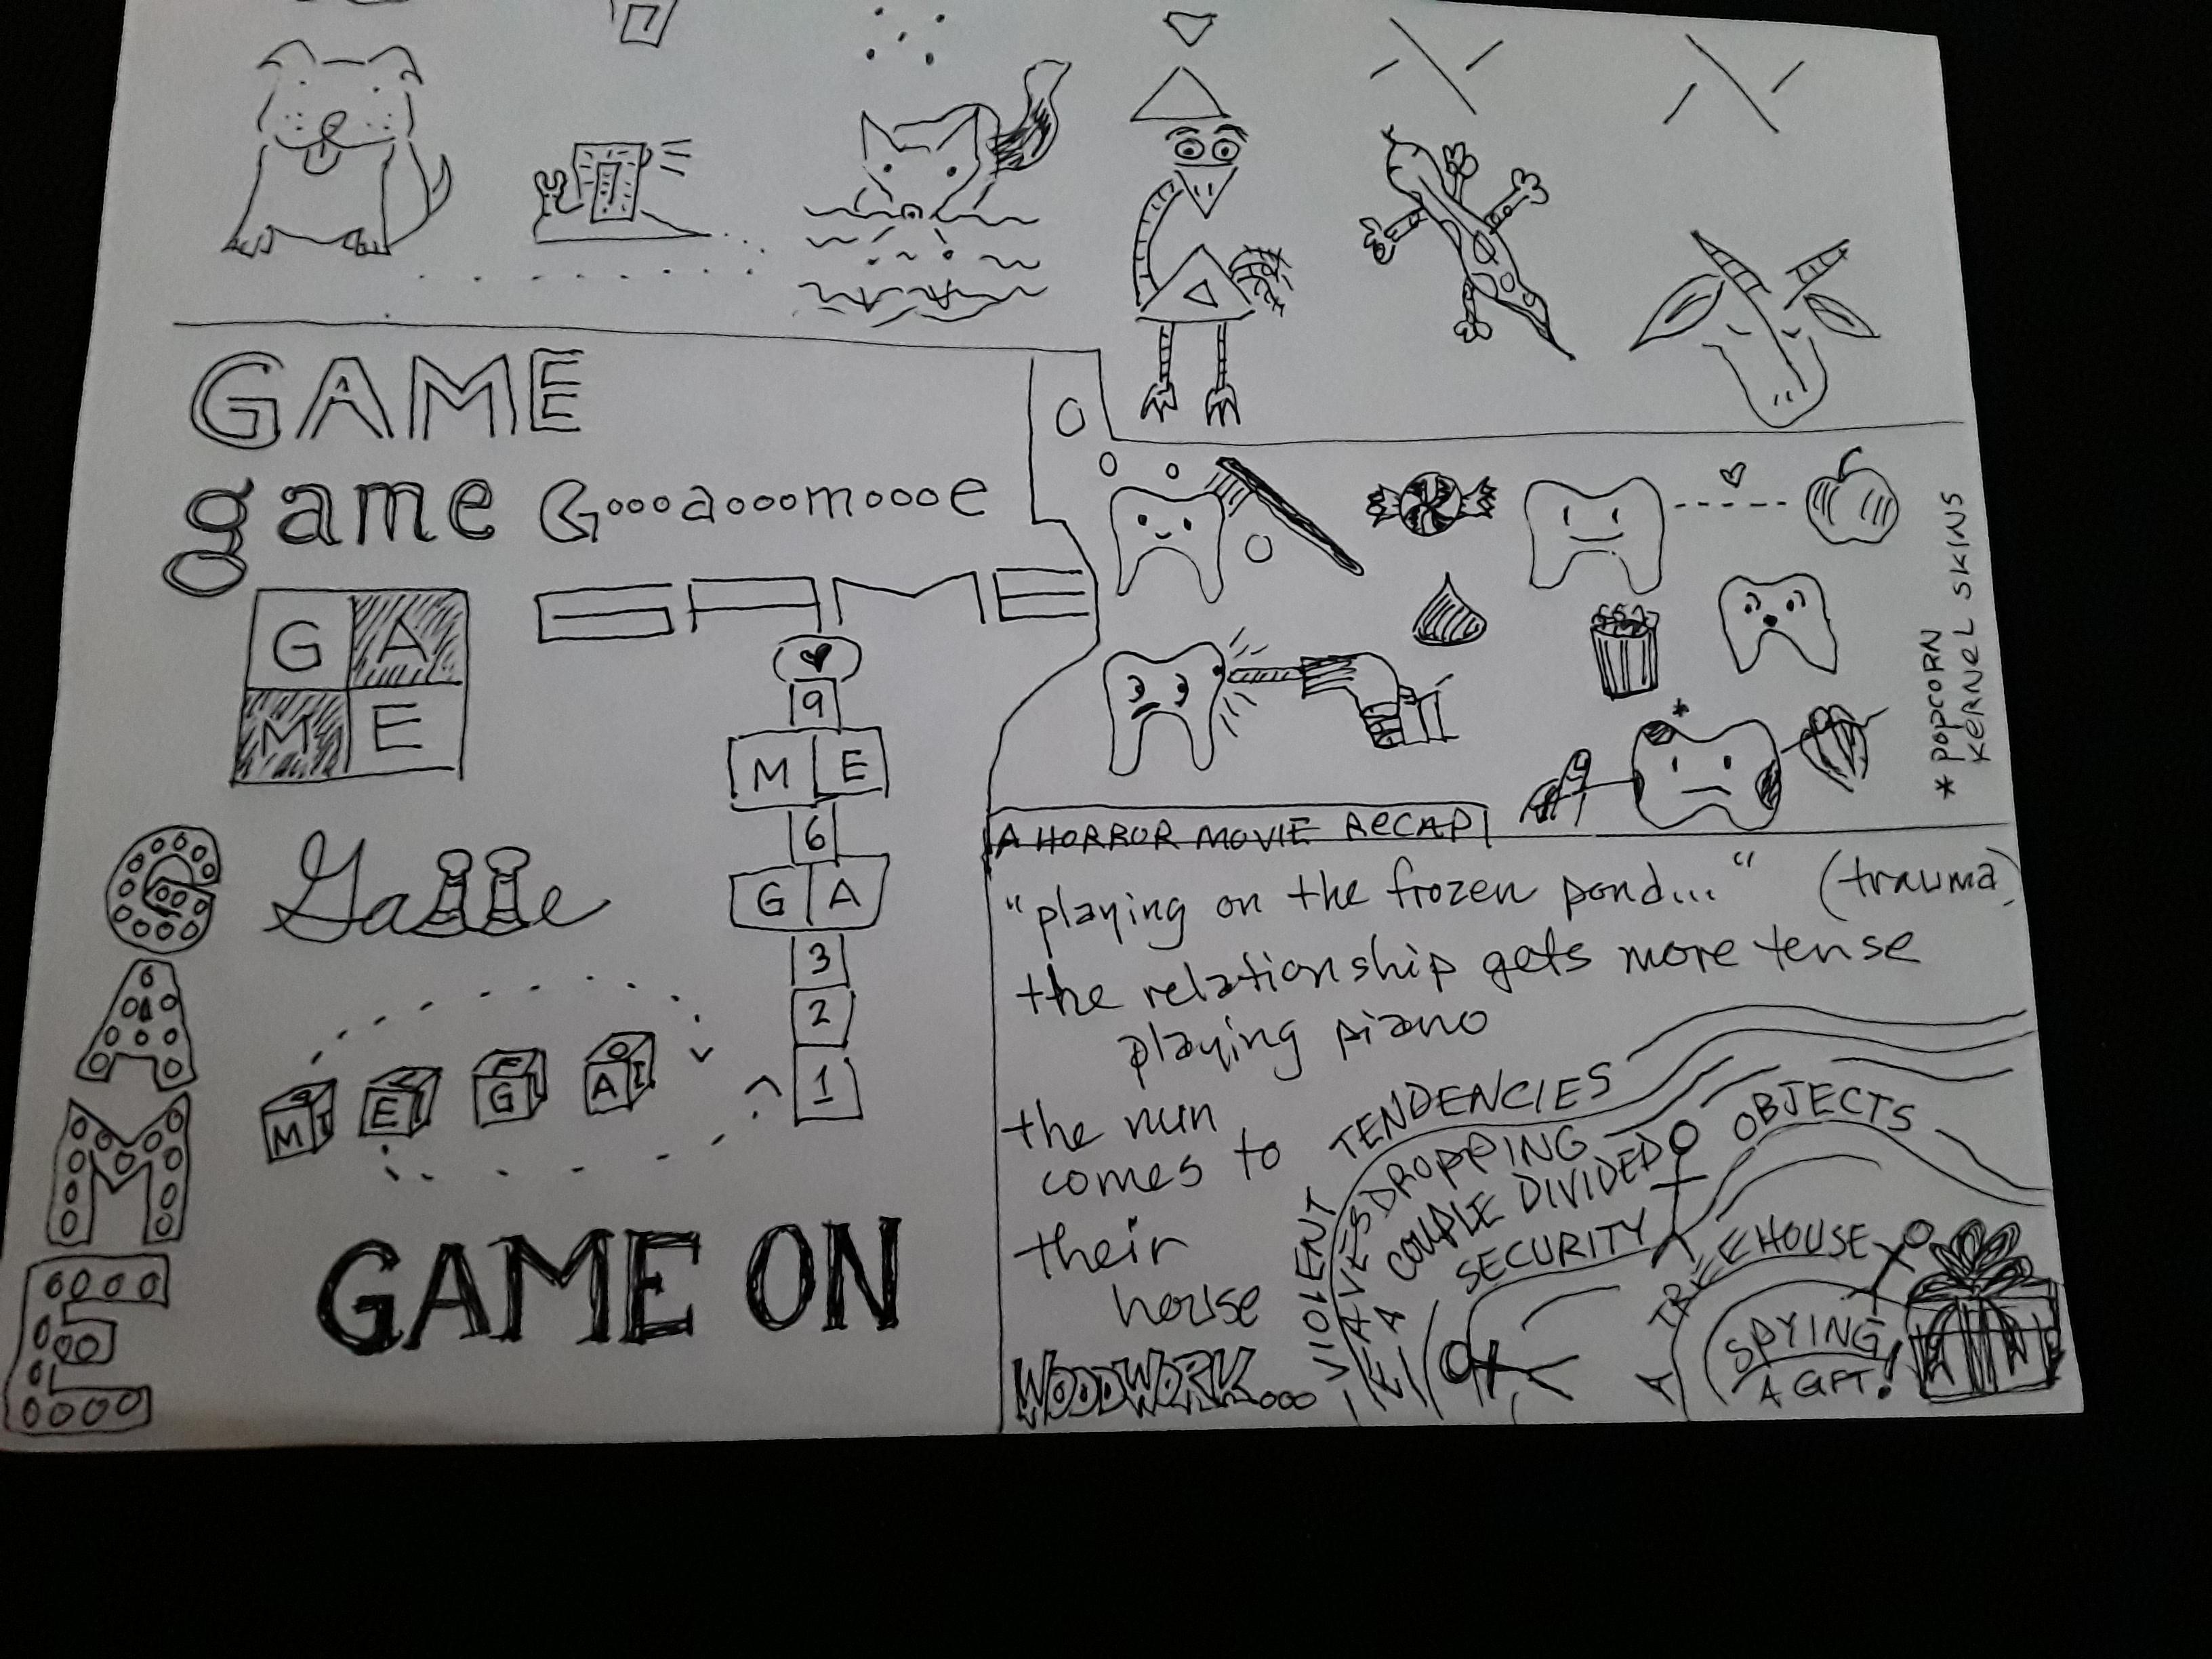 GAME
game Goooaooomoooe
GAME
G A
M E
9
M E
6
G A
3
2
1
GAME
Game
M E G A
GAME ON
* POPCORN
KERNEL SKINS
A HORROR MOVIE RECAP
"playing on the frozen pond..." (trauma)
the relationship gets more tense
playing piano
the nun
comes to
their
house
WOODWORK...
VIOLENT TENDENCIES
EAVESDROPPING
A COUPLE DIVIDED
SECURITY
OBJECTS
A TREEHOUSE
SPYING
A GIFT!